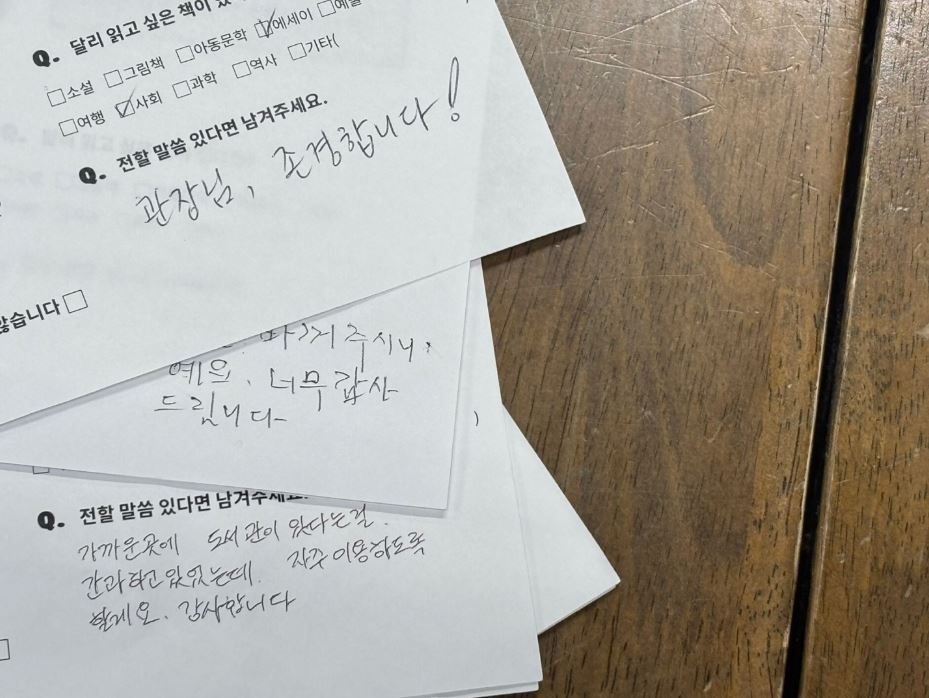 Q. 달리 읽고 싶은 책이 있
□소설 □그림책 □아동문학 ☑에세이 □예술
□여행 ☑사회 □과학 □역사 □기타(
Q. 전할 말씀 있다면 남겨주세요.
관장님, 존경합니다!
않습니다 □
주시니,
너무 감사
드립니다
Q. 전할 말씀 있다면 남겨주세요.
가까운곳에 도서관이 있다는걸
간과하고 있었는데. 자주 이용하도록
할게요. 감사합니다